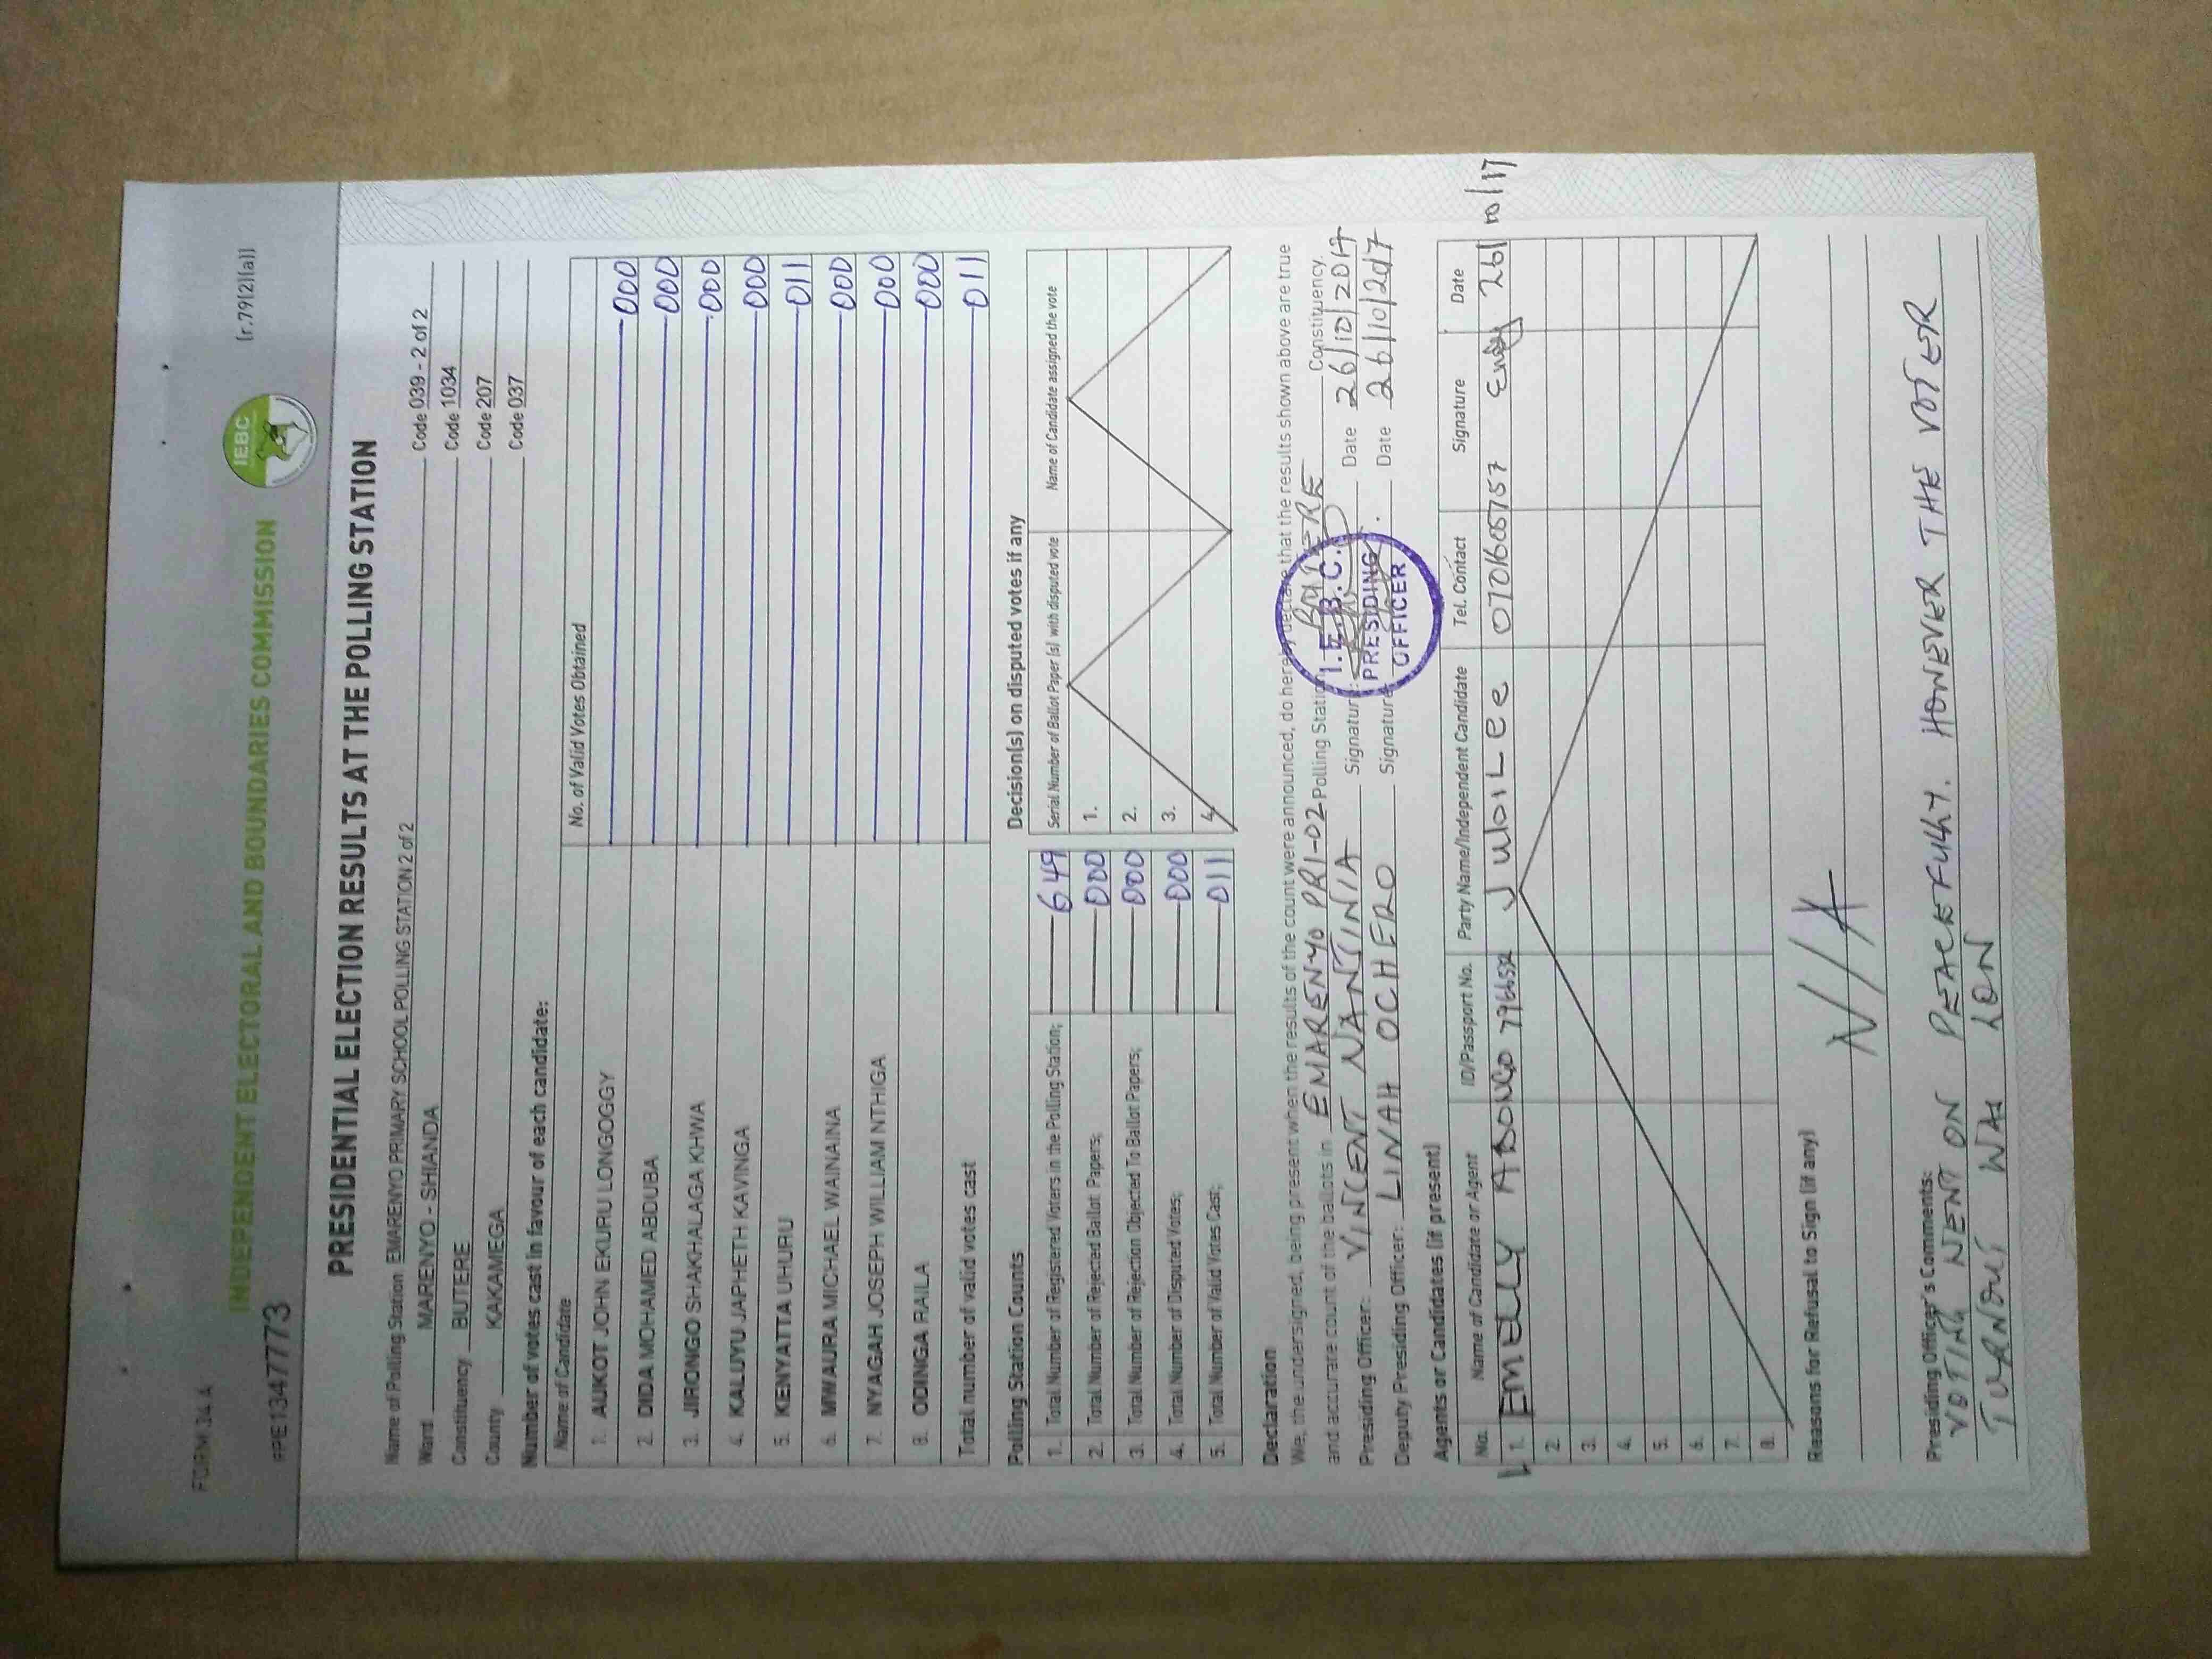 FORM 34A
(r.79(2)(a))
#PE13477773
INDEPENDENT ELECTORAL AND BOUNDARIES COMMISSION
IEBC
PRESIDENTIAL ELECTION RESULTS AT THE POLLING STATION
Name of Polling Station EMARENYO PRIMARY SCHOOL POLLING STATION 2 of 2 Code 039 - 2 of 2
Ward MARENYO - SHIANDA Code 1034
Constituency BUTERE Code 207
County KAKAMEGA Code 037
Number of votes cast in favour of each candidate:
Name of Candidate No. of Valid Votes Obtained
1. AUKOT JOHN EKURU LONGOGGY 000
2. DIDA MOHAMED ABDUBA 000
3. JIRONGO SHAKHALAGA KHWA 000
4. KALUYU JAPHETH KAVINGA 000
5. KENYATTA UHURU 011
6. MWAURA MICHAEL WAINAINA 000
7. NYAGAH JOSEPH WILLIAM NTHIGA 000
8. ODINGA RAILA 000
Total number of valid votes cast 011
Polling Station Counts
1. Total Number of Registered Voters in the Polling Station; 649
2. Total Number of Rejected Ballot Papers; 000
3. Total Number of Rejection Objected To Ballot Papers; 000
4. Total Number of Disputed Votes; 000
5. Total Number of Valid Votes Cast; 011
Decision(s) on disputed votes if any
Serial Number of Ballot Paper (s) with disputed vote Name of Candidate assigned the vote
1.
2.
3.
4.
Declaration
We, the undersigned, being present when the results of the count were announced, do hereby declare that the results shown above are true
and accurate count of the ballots in EMARENYO PRI-02 Polling Station, BUTERE Constituency.
Presiding Officer: VINCENT NANTINIA Signature: Date 26/10/2017
Deputy Presiding Officer: LINAH OCHERO Signature: Date 26/10/2017
I.E.B.C.
PRESIDING
OFFICER
Agents or Candidates (if present)
No. Name of Candidate or Agent ID/Passport No. Party Name/Independent Candidate Tel. Contact Signature Date
1. EMELLY ABONGO JubiLee 26/10/17
2.
3.
4.
5.
6.
7.
8.
Reasons for Refusal to Sign (if any)
N/A
Presiding Officer's Comments:
VOTING WENT ON PEACEFULLY. HOWEVER THE VOTER
TURNOUT WAS LOW